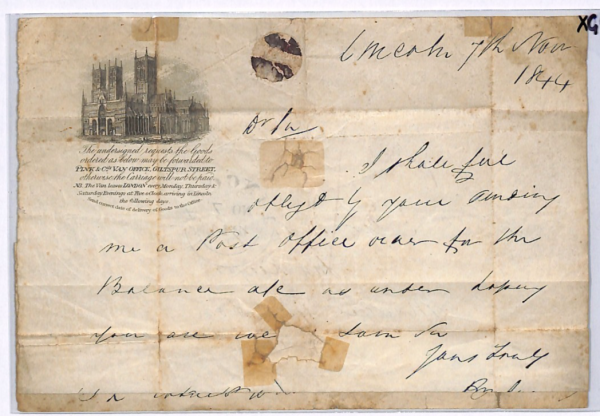 XG
Lincoln 7th Nov
1844
The undersigned requests the Goods
ordered as below may be forwarded to
PINK & Cos. VAN OFFICE, GILTSPUR STREET,
otherwise the Carriage will not be paid.
NB. The Van leaves LONDON every Monday, Thursday &
Saturday Evenings at Five o'Clock arriving in Lincoln
the following days.
Send correct date of delivery of Goods to the Office.
Dr Sir
I shall feel
oblgd by your sending
me a Post Office order for the
Balance a/c as under hoping
you are well I am Sir
Yours Truly